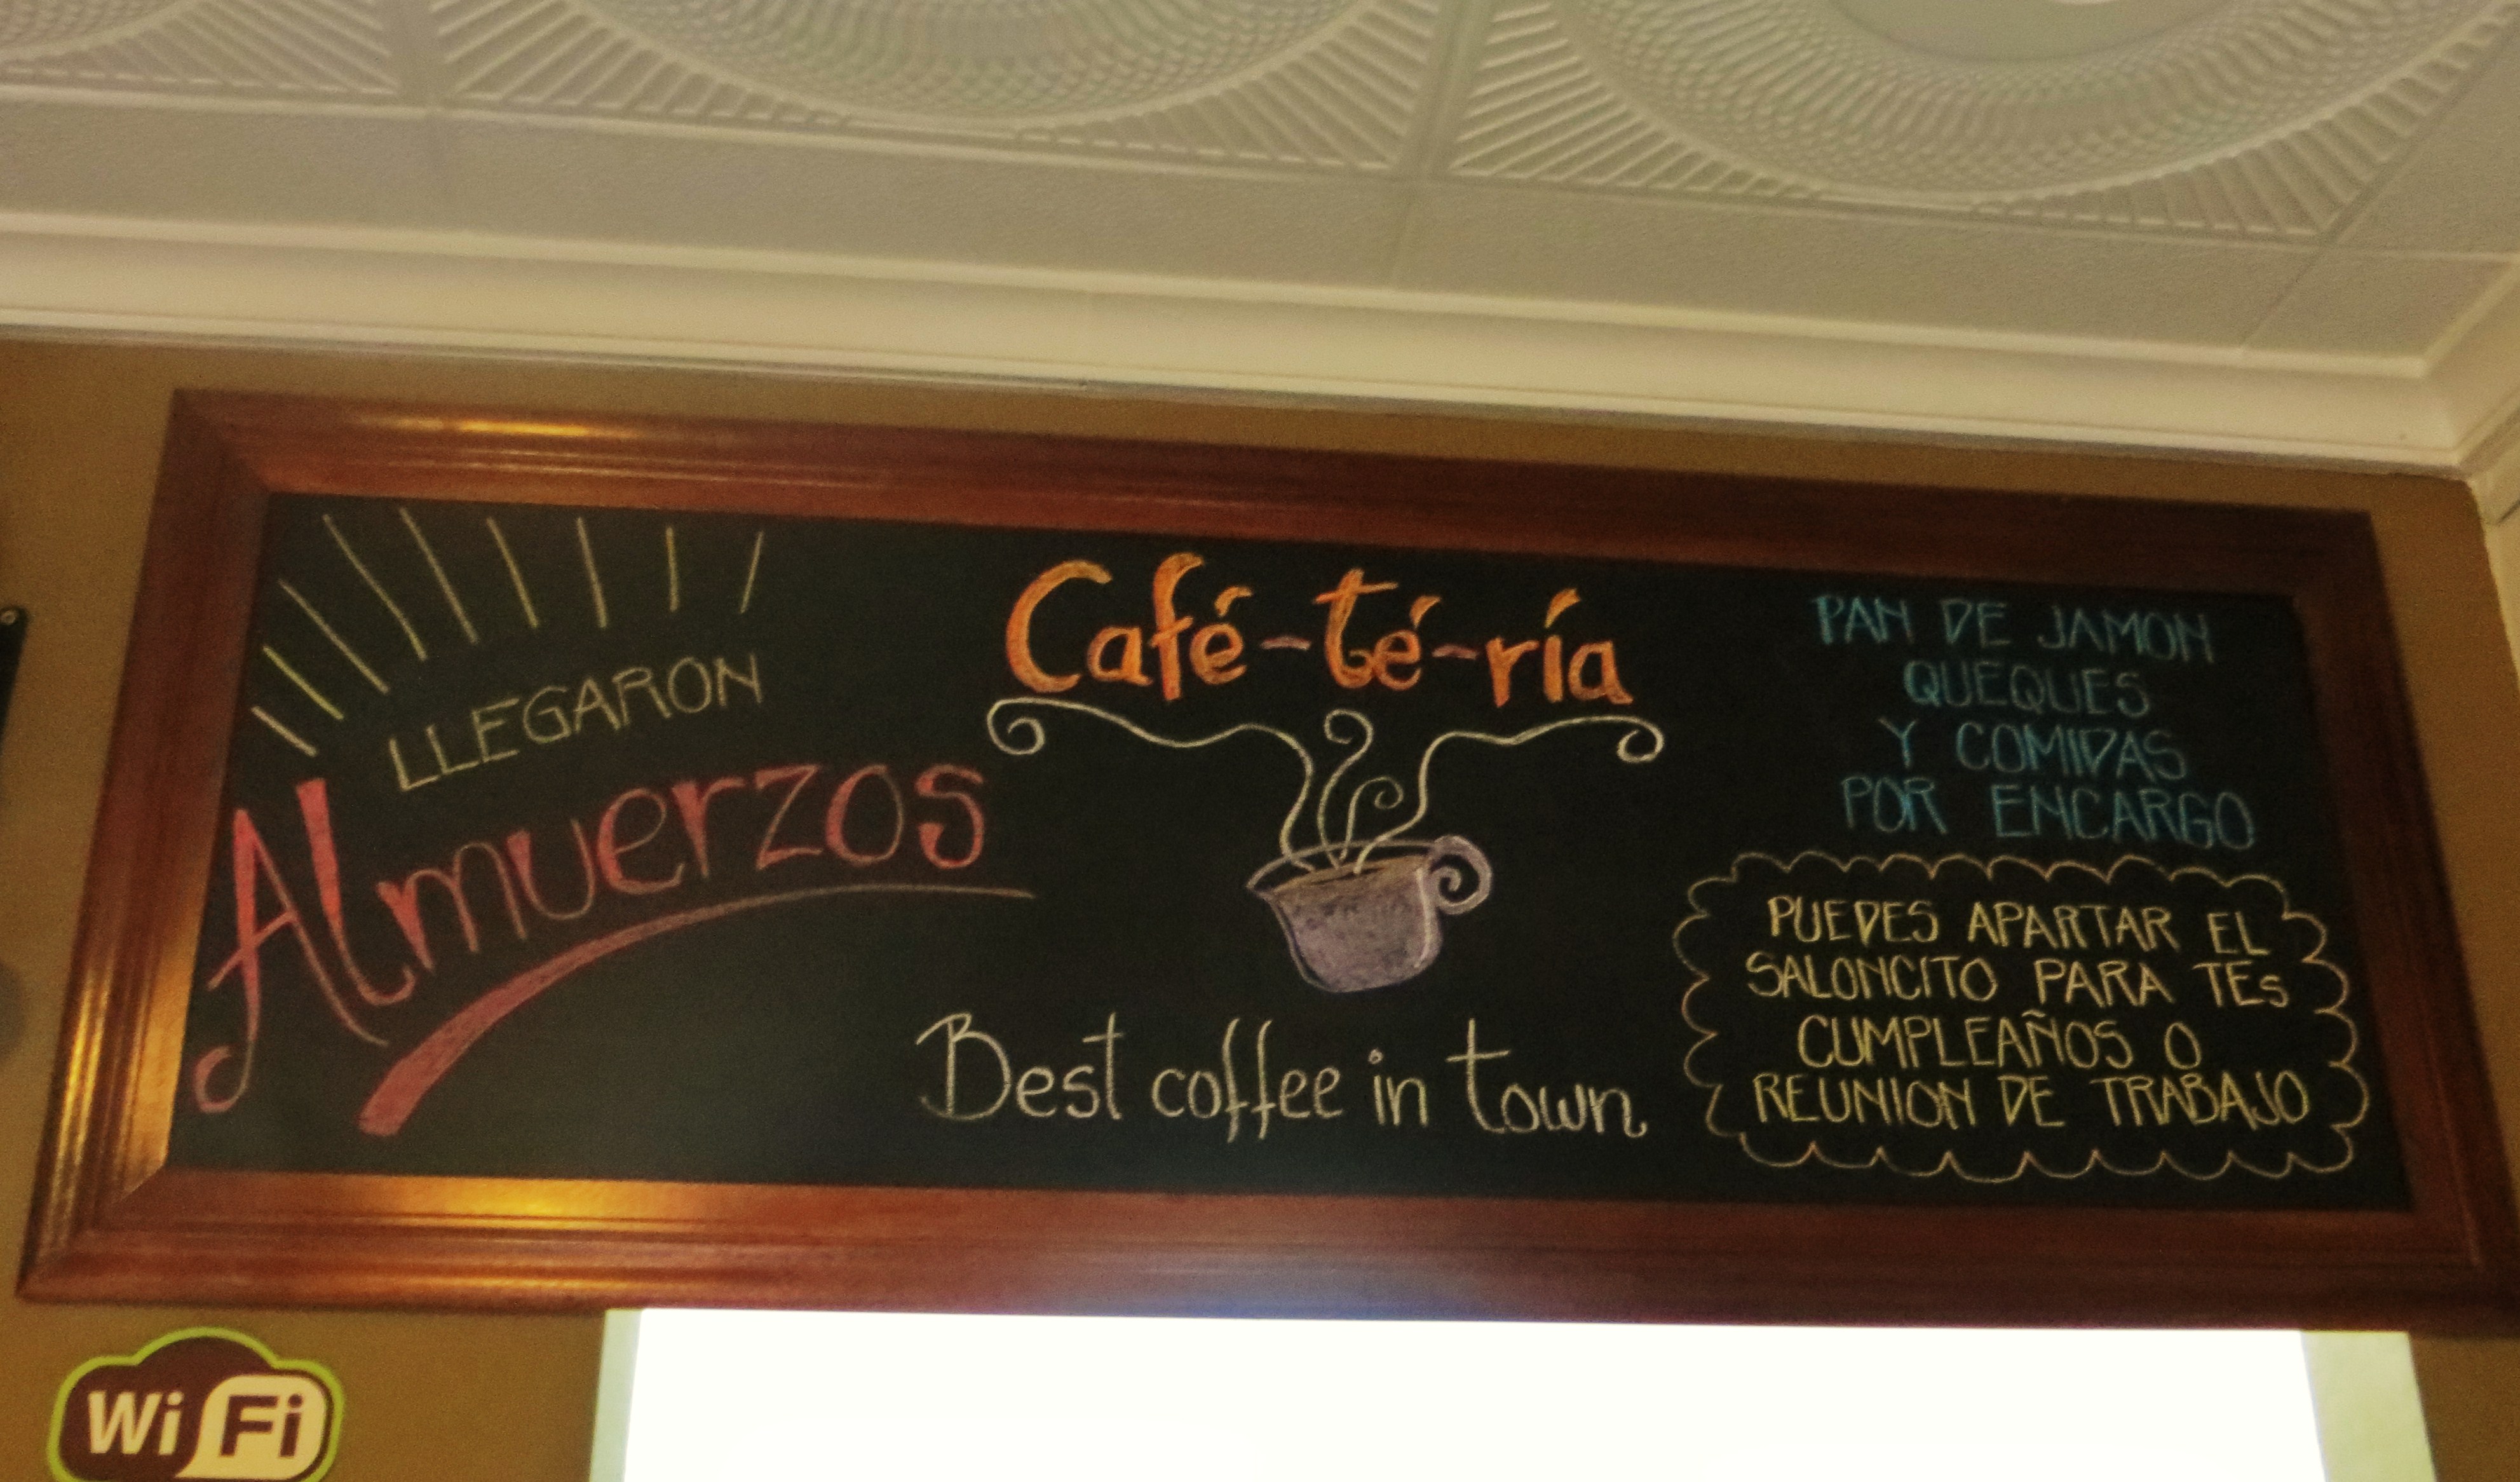 LLEGARON
Almuerzos
Café-té-ría
Best coffee in town
PAN DE JAMON
QUEQUES
Y COMIDAS
POR ENCARGO
PUEDES APARTAR EL
SALONCITO PARA TÉs
CUMPLEAÑOS O
REUNION DE TRABAJO
Wi Fi